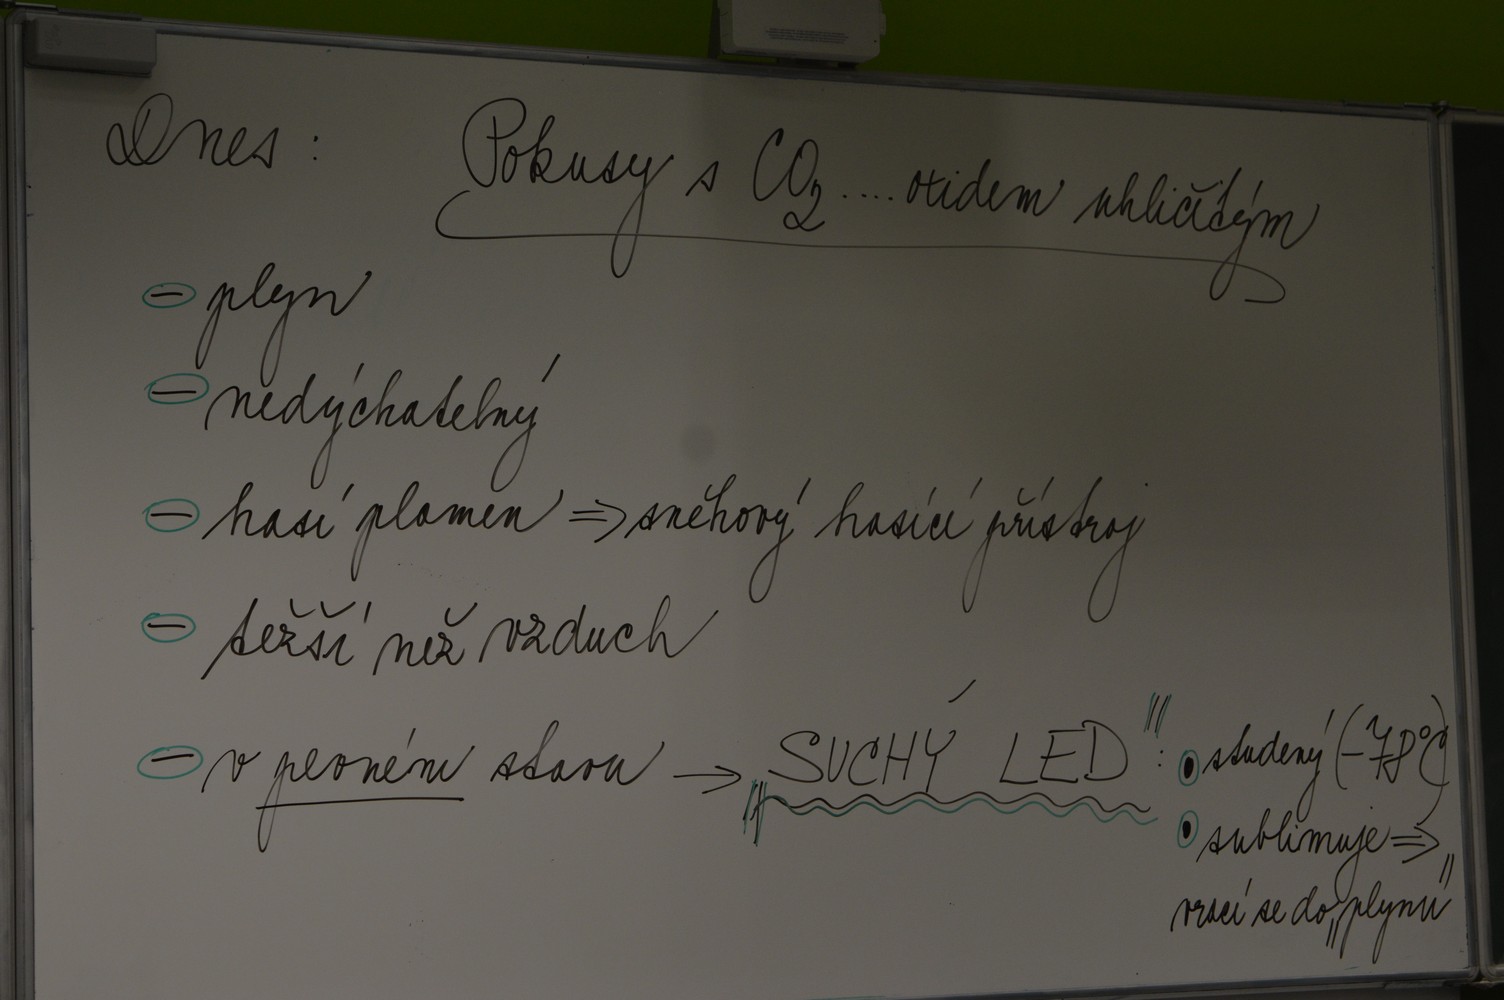 Dnes: Pokusy s CO₂....oxidem uhličitým
- plyn
- nedýchatelný
- hasí plamen ⇒ sněhový hasící přístroj
- težší než vzduch
- v pevném stavu → "SUCHÝ LED": • studený (-78°C)
• sublimuje ⇒
vrací se do "plynu"